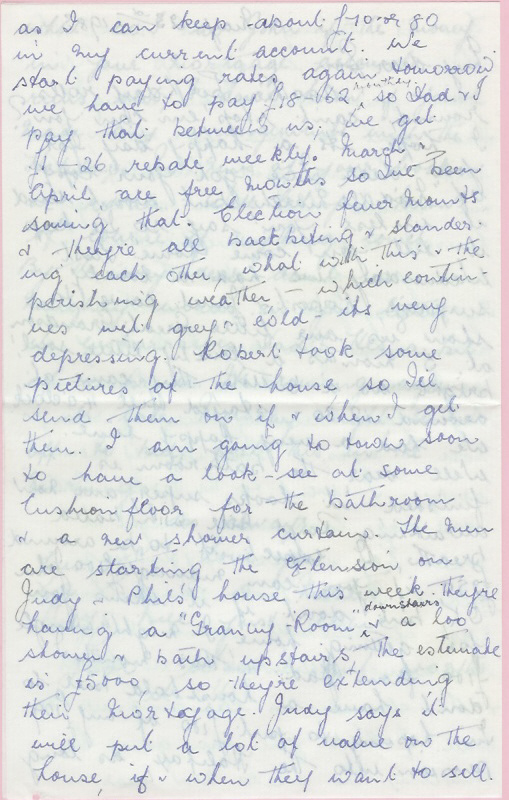 as I can keep about £70 or 80
in my current account. We
start paying rates again tomorrow
we have to pay £18-62 monthly, so Dad &
pay that between us. We get
£1-26 rebate weekly. March &
April are free months so I've been
saving that. Election fever mounts
& they're all backbiting & slander-
ing each other, what with this & the
perishing weather, - which contin-
ues wet grey & cold - its very
depressing. Robert took some
pictures of the house so I'll
send them on if & when I get
them. I am going to town soon
to have a look-see at some
Cushionfloor for the bathroom
& a new shower curtain. The men
are starting the extension on
Judy & Phils house this week. They're
having a "Granny-Room" downstairs & a loo
shower & bath upstairs - the estimate
is £5000, so they're extending
their mortgage. Judy says it
will put a lot of value on the
house, if & when they want to sell.